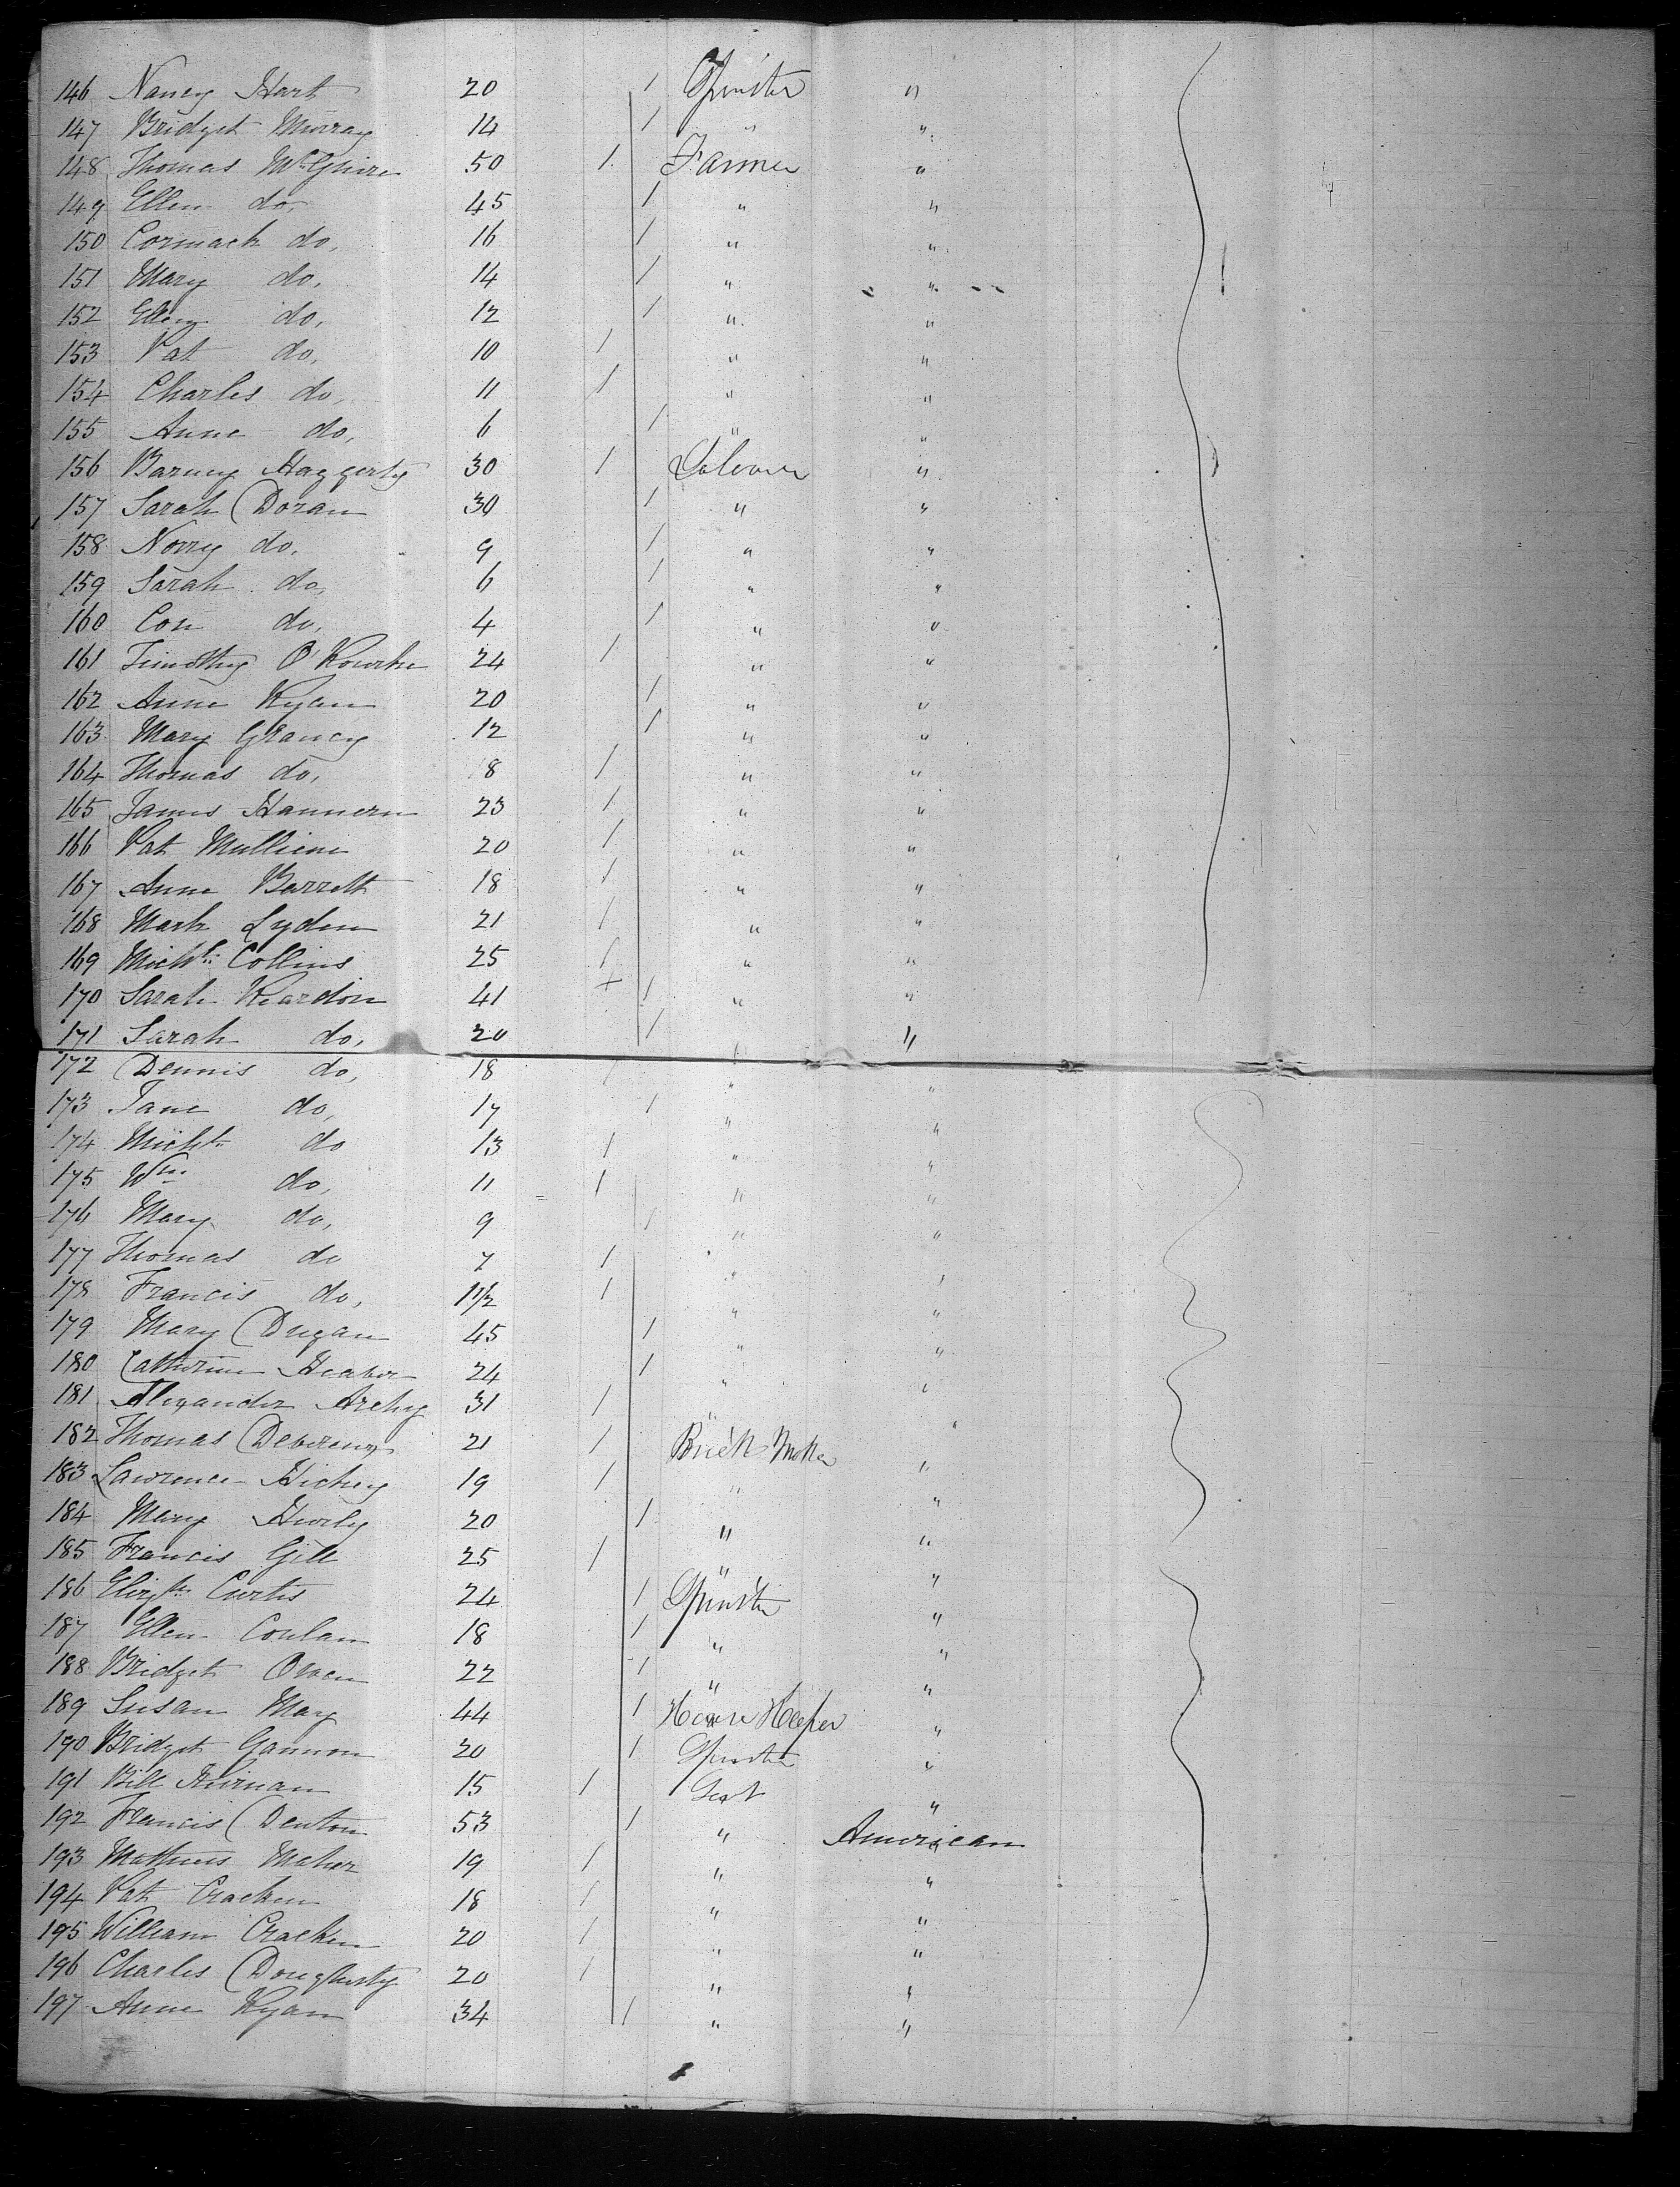 146 Nancy Hart 20 / Spinster "
147 Bridget Murray 14 / " "
148 Thomas McGuire 50 / Farmer "
149 Ellen do, 45 / " "
150 Cormack do, 16 / " "
151 Mary do, 14 / " "
152 Ellen do, 12 / " "
153 Pat do, 10 / " "
154 Charles do, 11 / " "
155 Anne do, 6 / " "
156 Barney Haggerty 30 / Laborer "
157 Sarah Doran 30 / " "
158 Norry do, 9 / " "
159 Sarah do, 6 / " "
160 Con do, 4 / " "
161 Timothy O'Rourke 24 / " "
162 Anne Ryan 20 / " "
163 Mary Graney 12 / " "
164 Thomas do, 8 / " "
165 James 23 / " "
166 Pat 20 / " "
167 Anne Barrett 18 / " "
168 Mark Lyden 21 / " "
169 Michl: Collins 25 / " "
170 Sarah Reardon 41 + / " "
171 Sarah do, 20 / "
172 Dennis do, 18 / " "
173 Jane do, 17 / " "
174 Michl do 13 / " "
175 Wm do, 11 / " "
176 Mary do, 9 / " "
177 Thomas do 7 / " "
178 Francis do, 1 1/2 / " "
179 Mary Dugan 45 / " "
180 Catherine 24 / " "
181 Alexander 31 / " "
182 Thomas Devereux 21 / Brick Maker "
183 Lawrence Hickey 19 / " "
184 Mary Hurly 20 / " "
185 Francis Gill 25 / " "
186 Curtis 24 / Spinster "
187 Ellen Conlan 18 / " "
188 Bridget Owen 22 / " "
189 Susan May 44 / House Keeper "
190 Bridget Gannon 20 / Spinster "
191 Bill Kiernan 15 / Gent "
192 Francis Denton 53 / " American
193 Mathew Maher 19 / " "
194 Pat Cracken 18 / " "
195 William Cracken 20 / " "
196 Charles Dougherty 20 / " "
197 Anne Ryan 34 / " "